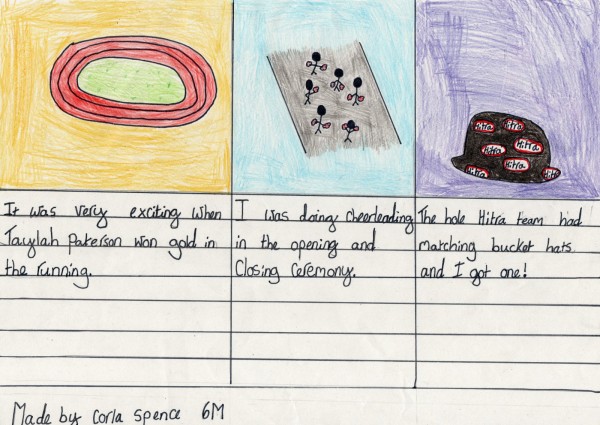 Hitra
Hitra
Hitra
Hitra
Hitra
Hitra
Hitra
Hitra
It was very exciting when
Jaylah Pakerson won gold in
the running.
I was doing cheerleading
in the opening and
Closing Ceremony.
The hole Hitra team had
matching bucket hats
and I got one!
Made by Corla Spence 6M